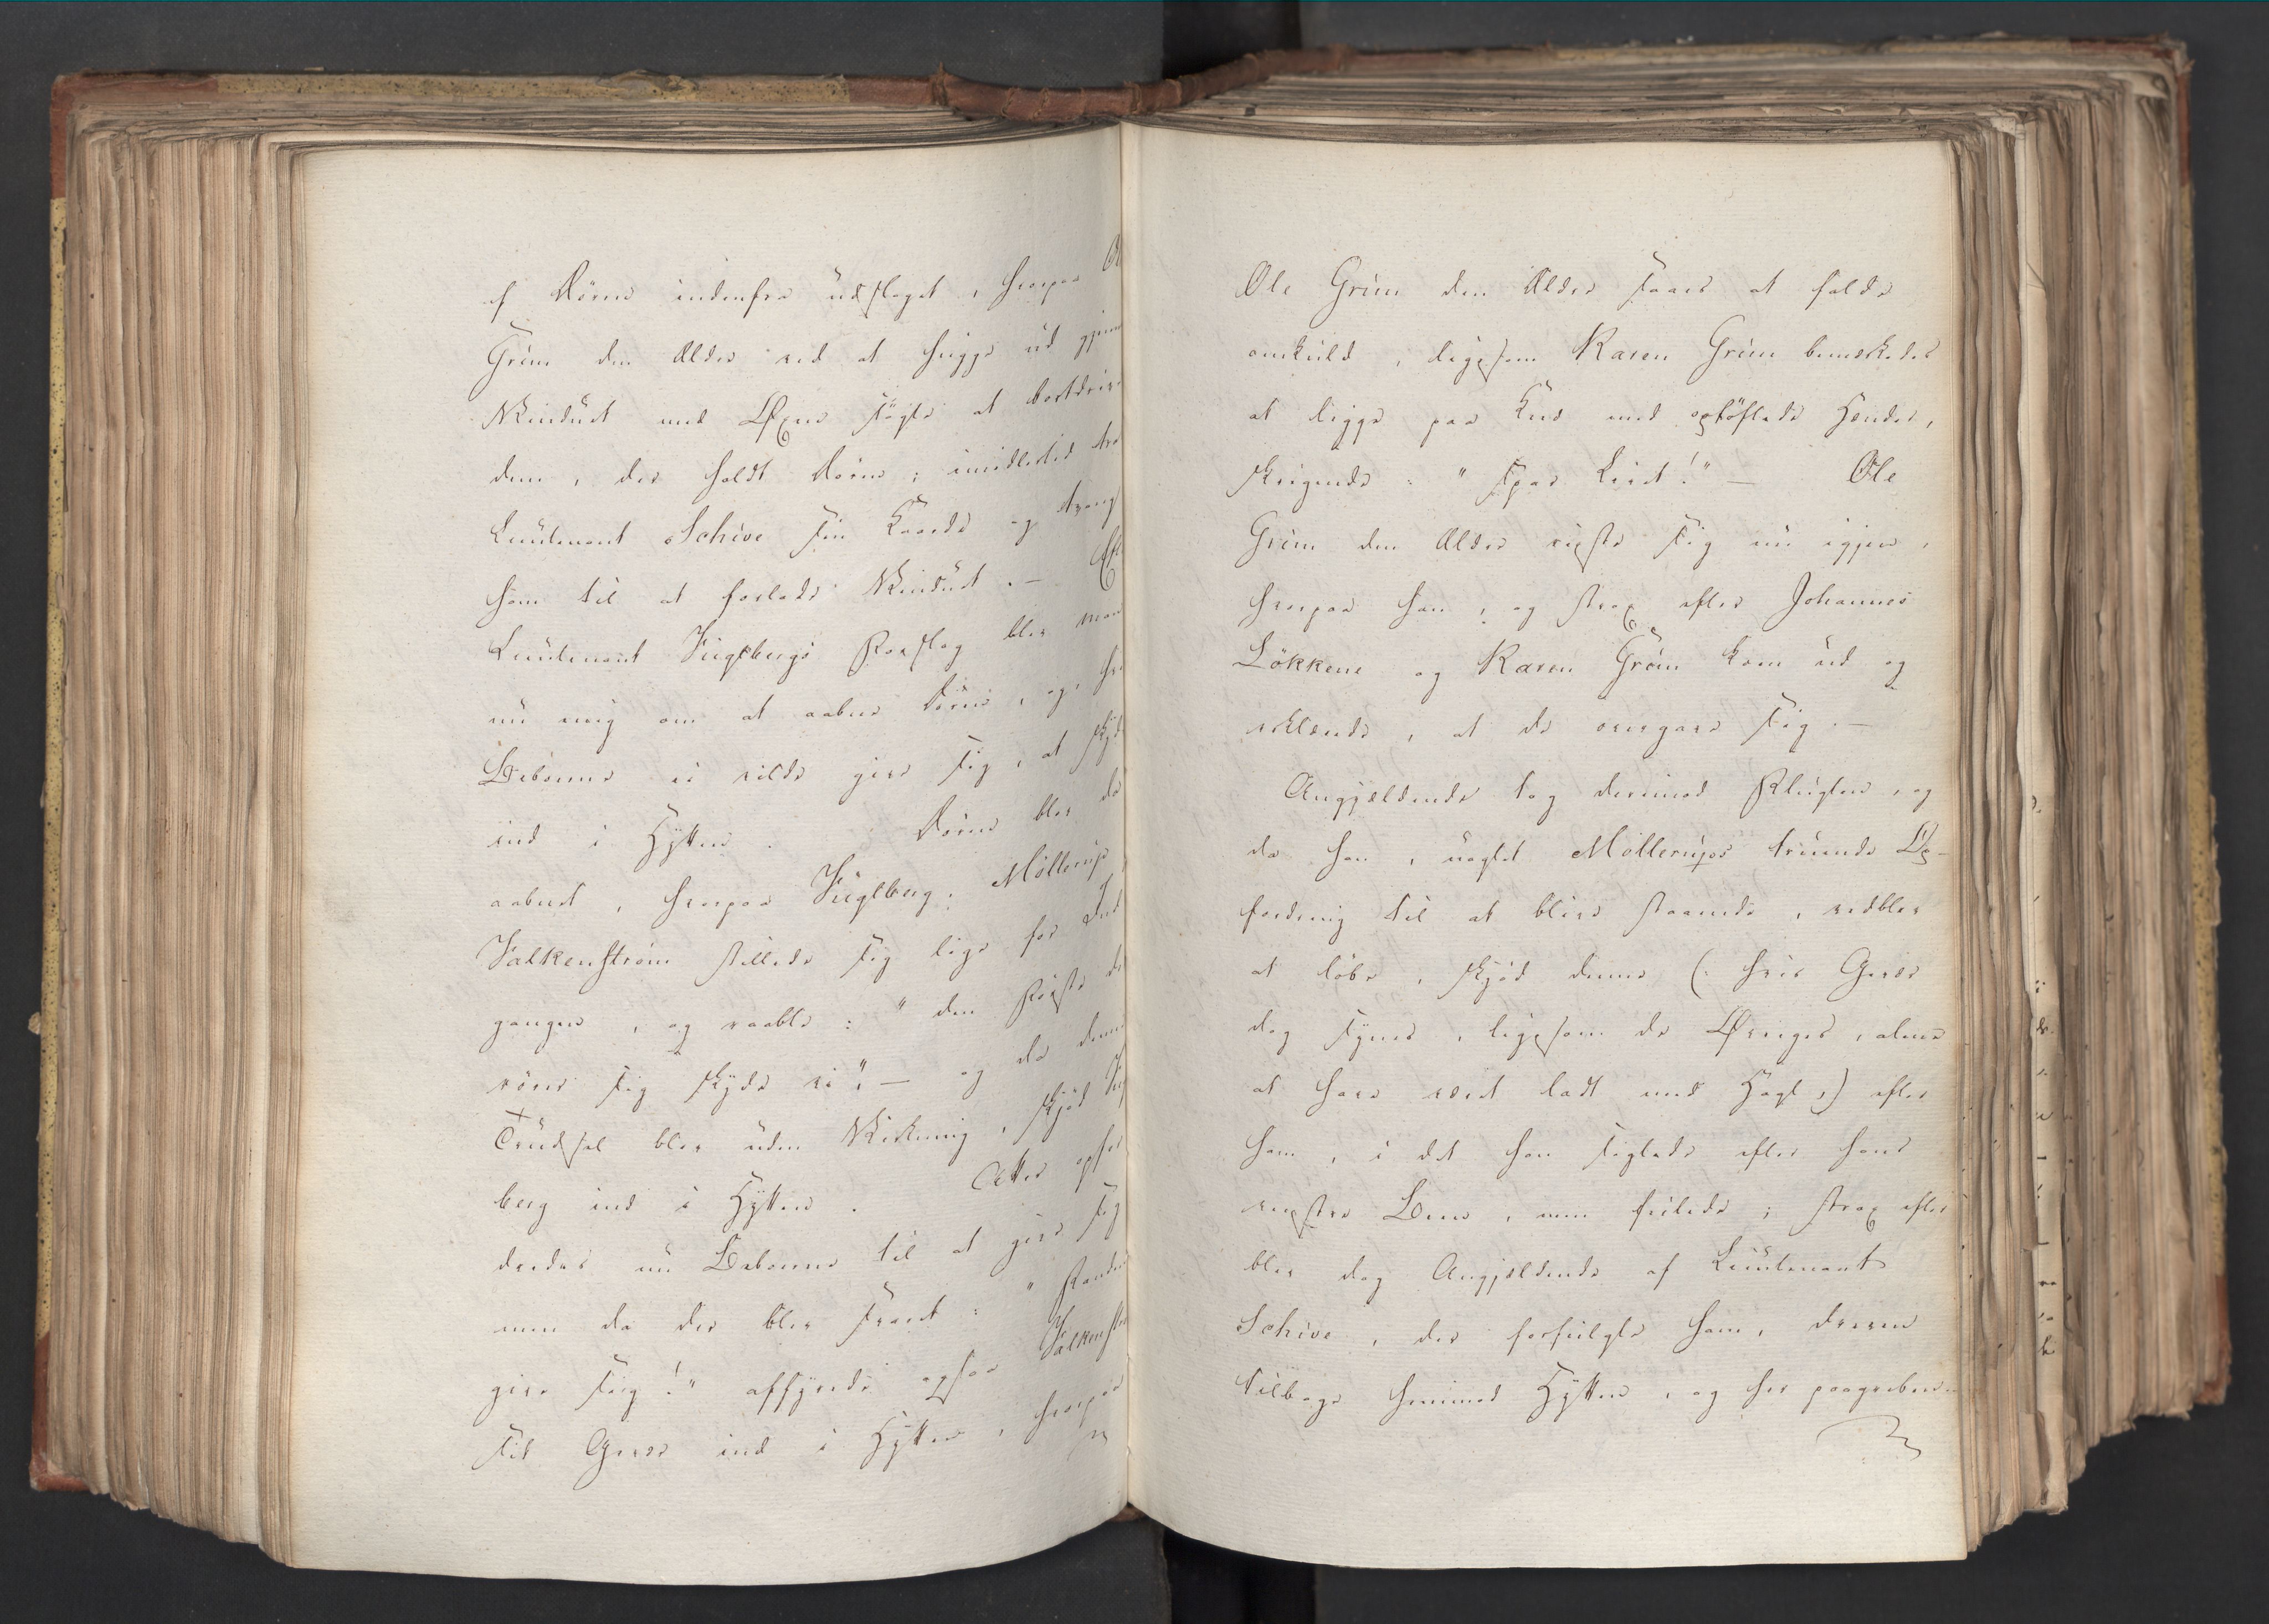 af Dören indenfra udslaget, hvorpaa
Grüm den Ældre ved at hugge ud gjennem
Vinduet med Øxen søgte at bortdrive
dem, der holdt Dören; imidlertid
Lieutenant Schive sin Kaarde og tvang
ham til at forlade Vinduet. —
Lieutenant Fuglbergs Forslag blev man
nu enig om at aabne Dören, og,
Beboerne ei vilde give sig, at skyde
ind i Hytten. Dören blev da
aabnet, hvorpaa Fuglberg, Möllerup,
Falkenström stillede sig lige for Ind-
gangen, og raabte: "den Förste der
rörer sig skyde vi"; — og da denne
Trudsel blev uden Virkning, skjöd Fugl-
berg ind i Hytten. Atter opfor-
dredes nu Beboerne til at give sig
men da der blev svaret: "Fanden
give sig!" affyrede ogsaa Falkenström
sit Gevær ind i Hytten, hvorpaa
Ole Grüm den Ældre saaes at falde
omkuld, ligesom Karen Grüm bemærkedes
at ligge paa Knæ med opløftede Hænder,
skrigende: "Spar Livet!" — Ole
Grüm den Ældre reiste sig nu igjen,
hvorpaa han, og strax efter Johannes
Lökkene og Karen Grüm kom ud og
erklærede, at de overgave sig. —
Angjældende tog derimod Flugten, og
da han, uagtet Möllerups truende Op-
fordring til at blive staaende, vedblev
at løbe, skjöd denne (: hvis Gevær
dog synes, ligesom de Øvriges, alene
at have været ladt med Hagl:) efter
ham, i det han sigtede efter hans
venstre Been, men feilede; strax efter
blev dog Angjældende af Lieutenant
Schive, der forfulgte ham, dreven
tilbage henimod Hytten, og her paagreben